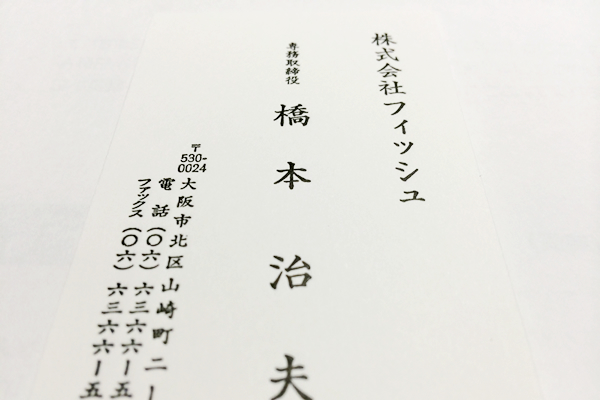 株式会社フィッシュ
専務取締役
橋本治夫
〒530-0024
大阪市北区山崎町二ー
電話(〇六)六三六六ー五
ファックス(〇六)六三六六ー五